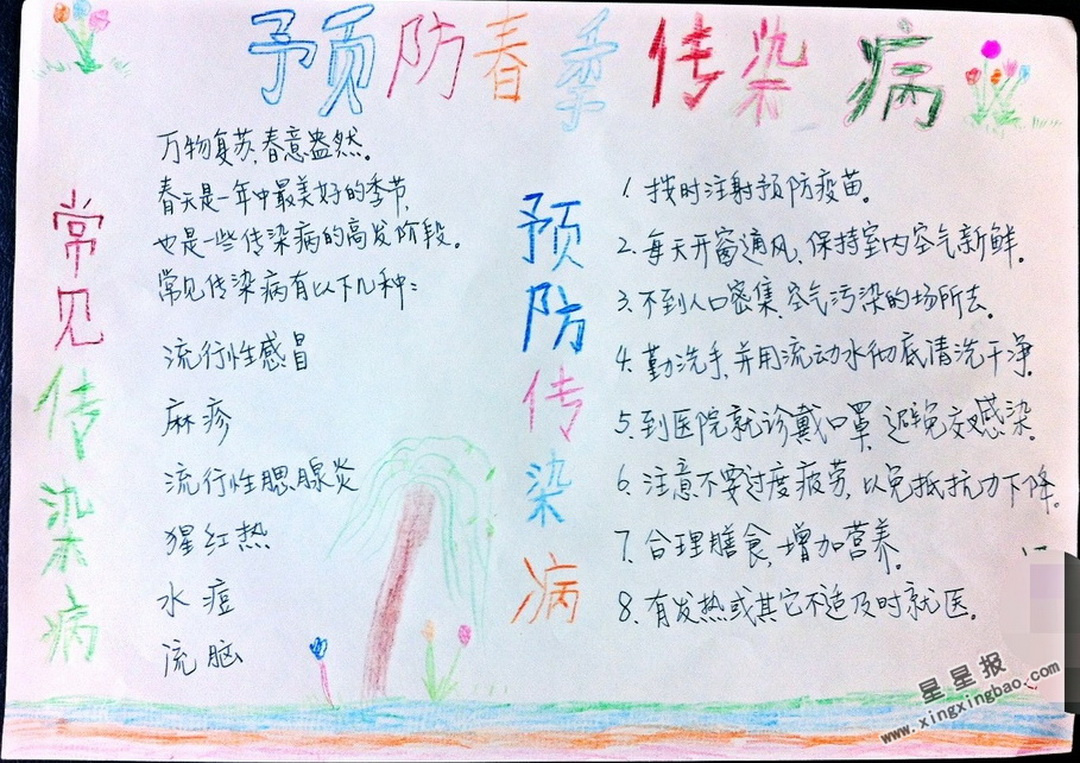 预防春季传染病
常见传染病
万物复苏、春意盎然。
春天是一年中最美好的季节,
也是一些传染病的高发阶段。
常见传染病有以下几种:
流行性感冒
麻疹
流行性腮腺炎
猩红热
水痘
流脑
预防传染病
1. 按时注射预防疫苗。
2. 每天开窗通风、保持室内空气新鲜.
3. 不到人口密集.空气污染的场所去。
4. 勤洗手,并用流动水彻底清洗干净.
5. 到医院就诊戴口罩,避免交叉感染.
6. 注意不要过度疲劳,以免抵抗力下降。
7. 合理膳食,增加营养。
8. 有发热或其它不适及时就医。
星星报
www.xingxingbao.com